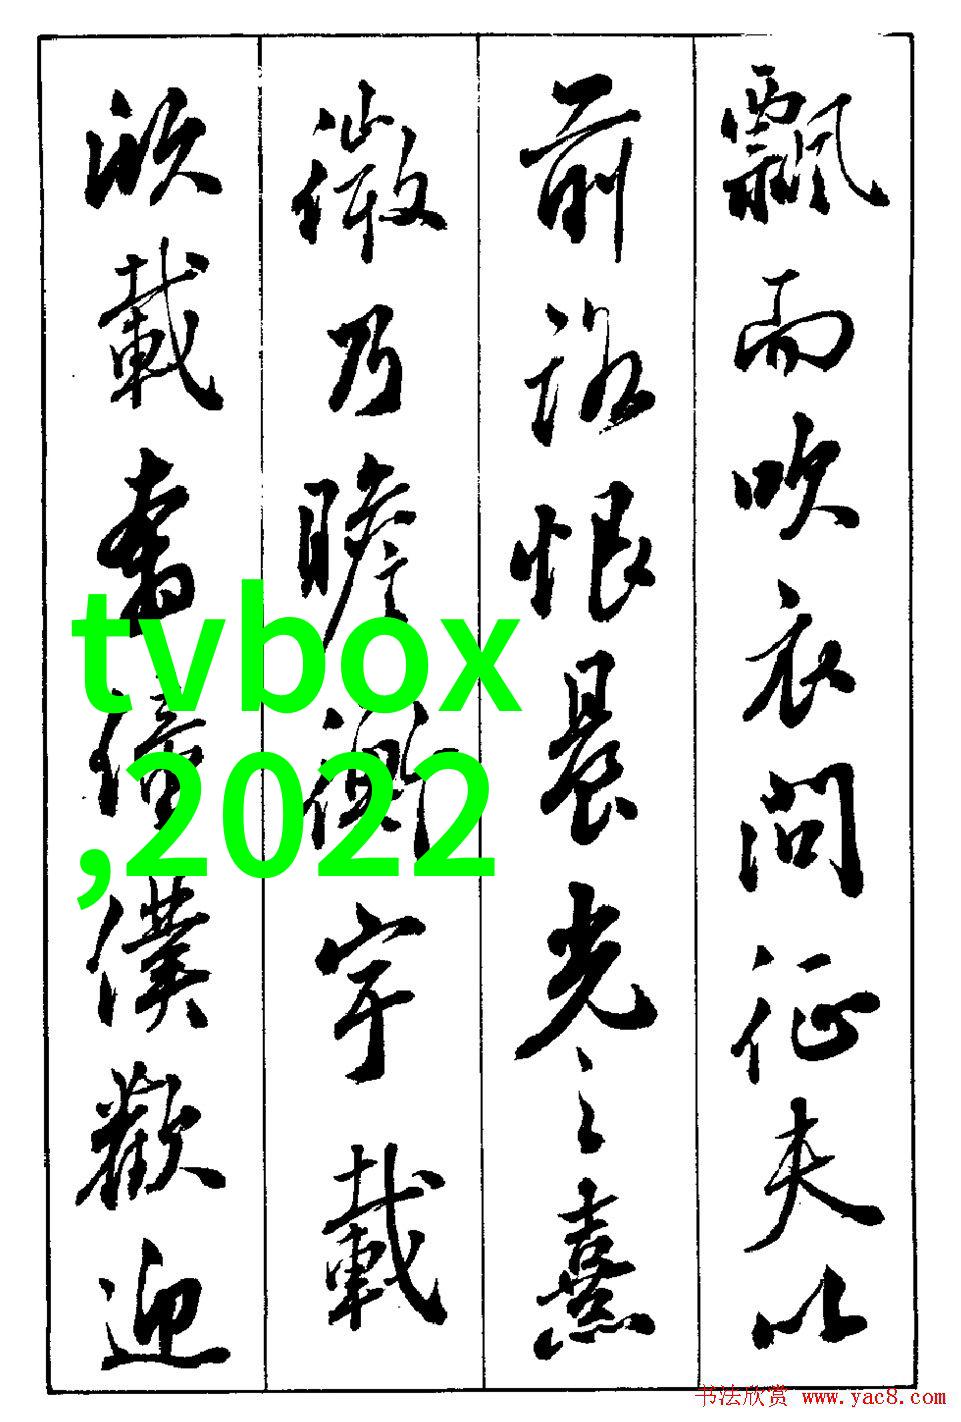 飄而吹衣問征夫以
前路恨晨光之熹
微乃瞻衡宇載
欣載奔僮僕歡迎
tvbox
,2022
书法欣赏 www.yac8.com